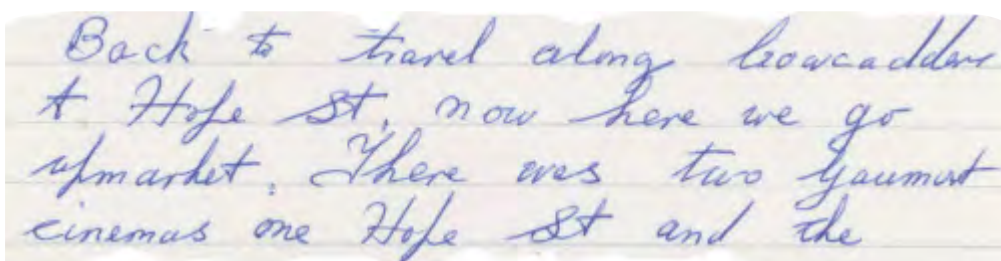 Back to travel along Cowcaddens
to Hope St, now here we go
upmarket. There was two Gaumont
cinemas one Hope St and the